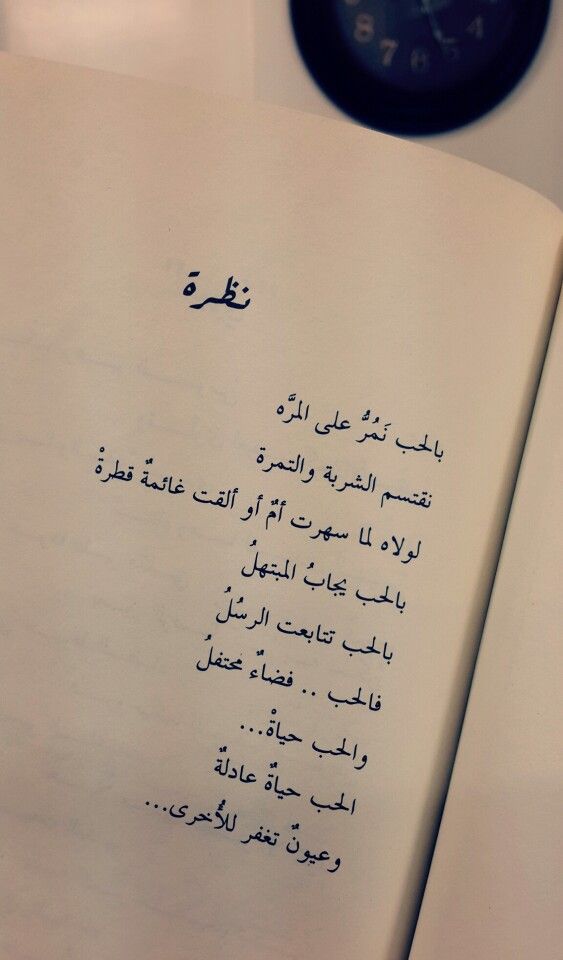 8
7
6
5
4
نظرة
بالحب نَمُرُّ على المرَّه
نقتسم الشربة والتمرة
لولاه لما سهرت أمٌ أو ألقت غائمةٌ قطرةْ
بالحب يجابُ المبتهلُ
بالحب تتابعت الرسُلُ
فالحب .. فضاءٌ محتفلُ
والحب حياةْ...
الحب حياةٌ عادلةٌ
وعيونٌ تغفر للأُخرى...